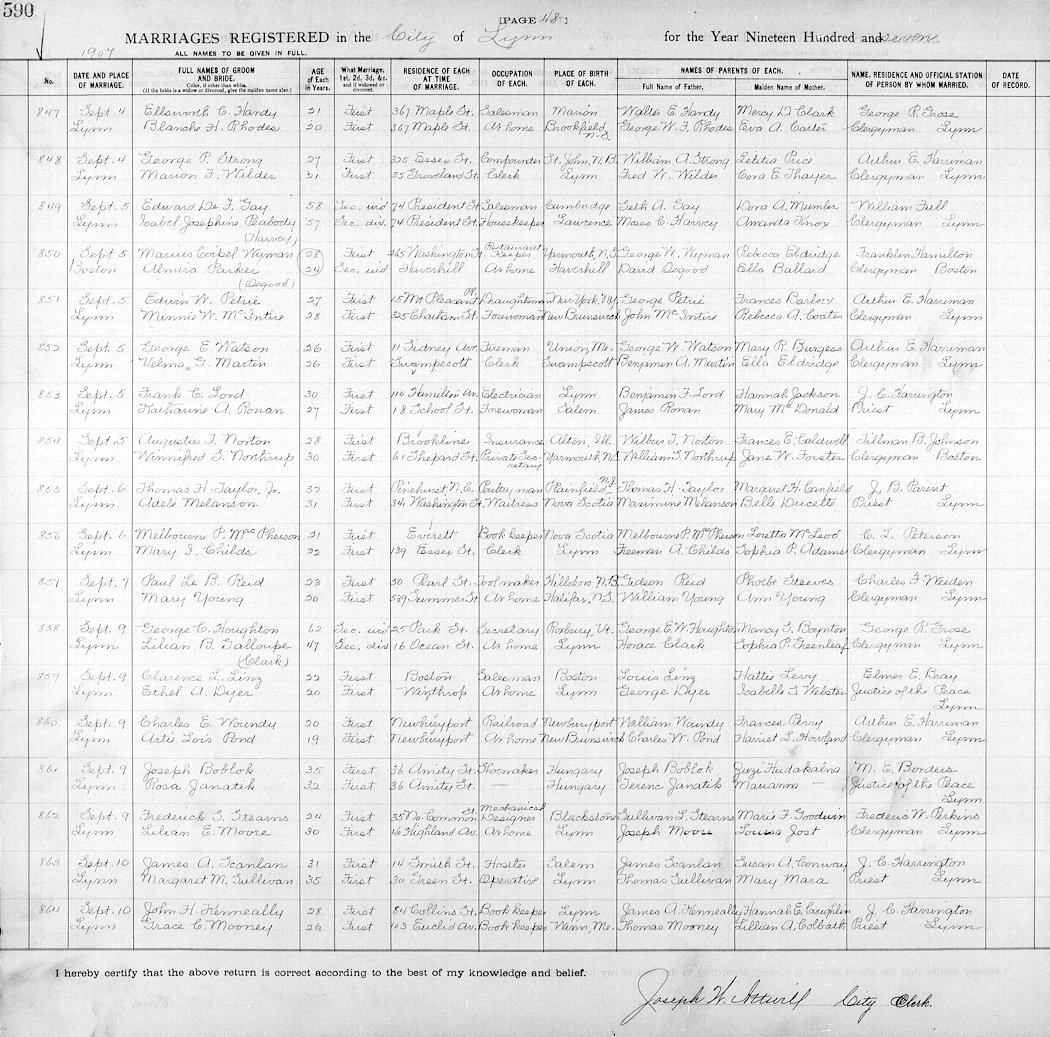 590
[PAGE 48]
MARRIAGES REGISTERED in the City of Lynn for the Year Nineteen Hundred and seven.
1907
ALL NAMES TO BE GIVEN IN FULL.
No. DATE AND PLACE OF MARRIAGE. FULL NAMES OF GROOM AND BRIDE. Color, if other than white. (If the bride is a widow or divorced, give the maiden name also.) AGE of Each in Years. What Marriage, 1st, 2d, 3d, &c. and if widowed or divorced. RESIDENCE OF EACH AT TIME OF MARRIAGE. OCCUPATION OF EACH. PLACE OF BIRTH OF EACH. NAMES OF PARENTS OF EACH. Full Name of Father. Maiden Name of Mother. NAME, RESIDENCE AND OFFICIAL STATION OF PERSON BY WHOM MARRIED. DATE OF RECORD.
847 Sept. 4 Ellsworth E. Handy 21 First 367 Maple St. Salesman Marion Walter E. Handy Mercy D. Clark George R. Grose
Lynn Blanche H. Rhodes 20 First 367 Maple St. At home Brookfield, N.S. George W. F. Rhodes Eva A. Carter Clergyman Lynn
848 Sept. 4 George P. Strong 27 First 325 Essex St. Compounder St. John, N.B. William A. Strong Letitia Price Arthur E. Harriman
Lynn Marion F. Wilder 21 First 35 Groveland St. Clerk Lynn Fred W. Wilder Cora E. Thayer Clergyman Lynn
849 Sept. 5 Edward De F. Gay 58 Sec. wid 74 President St. Salesman Cambridge Seth A. Gay Dora A. Mumler William Full
Lynn Isabel Josephine Peabody (Harvey) 57 Sec. div. 74 President St. Housekeeper Lawrence Moses C. Harvey Amanda Knox Clergyman Lynn
850 Sept. 5 Marcus Coipel Wyman 28 First 265 Washington St. Restaurant Keeper Yarmouth, N.S. George W. Wyman Rebecca Eldridge Franklin Hamilton
Boston Almira Parker (Osgood) 24 Sec. wid Haverhill At home Haverhill David Osgood Ella Ballard Clergyman Boston
851 Sept. 5 Edwin W. Petrie 27 First 15 Mt Pleasant Pl. Draughtsman New York, N.Y. George Petrie Frances Barlow Arthur E. Harriman
Lynn Minnie W. McIntire 28 First 325 Chatham St. Forewoman New Brunswick John McIntire Rebecca A. Coates Clergyman Lynn
852 Sept. 5 George E. Watson 26 First 11 Sidney Av. Fireman Union, Me. George W. Watson Mary R. Burgess Arthur E. Harriman
Lynn Velma G. Martin 26 First Swampscott Clerk Swampscott Benjamin A. Martin Ella Eldridge Clergyman Lynn
853 Sept. 5 Frank C. Lord 30 First 110 Hamilton Av. Electrician Lynn Benjamin F. Lord Hannah Jackson J. C. Harrington
Lynn Katharine A. Ronan 27 First 18 School St. Forewoman Salem James Ronan Mary McDonald Priest Lynn
854 Sept. 5 Augustus T. Norton 28 First Brookline Insurance Alton, Ill. Wilbur T. Norton Frances E. Caldwell Tillman B. Johnson
Lynn Winnifred S. Northrup 30 First 61 Shepard St. Private Secretary Yarmouth, N.S. William S. Northrup Jane W. Forster Clergyman Boston
855 Sept. 6 Thomas H. Taylor, Jr. 32 First Pinehurst, N.C. Poultryman Plainfield, N.J. Thomas H. Taylor Margaret H. Canfield J. B. Parent
Lynn Adele Melanson 31 First 341 Washington St. Waitress Nova Scotia Maximine Melanson Belle Ducette Priest Lynn
856 Sept. 6 Melbourne P. MacPherson 21 First Everett Book keeper Nova Scotia Melbourne P. MacPherson Loretta McLeod C. L. Peterson
Lynn Mary I. Childs 22 First 139 Essex St. Clerk Lynn Freeman A. Childs Sophia P. Adams Clergyman Lynn
857 Sept. 7 Paul Le B. Reid 23 First 50 Pearl St. Toolmaker Hillsboro, N.B. Gideon Reid Phoebe Steeves Charles F. Weeden
Lynn Mary Young 20 First 509 Summer St. At home Halifax, N.S. William Young Ann Young Clergyman Lynn
858 Sept. 9 George C. Houghton 62 Sec. wid 25 Park St. Secretary Roxbury, Vt. George E. W. Houghton Nancy S. Boynton George R. Grose
Lynn Lilian B. Galloupe (Clark) 47 Sec. div 16 Ocean St. At home Lynn Horace Clark Sophia P. Greenleaf Clergyman Lynn
859 Sept. 9 Clarence L. Linz 22 First Boston Salesman Boston Louis Linz Hattie Levy Elmer E. Bray
Lynn Ethel A. Dyer 20 First Winthrop At home Lynn George Dyer Isabelle S. Webster Justice of the Peace Lynn
860 Sept. 9 Charles E. Woundy 20 First Newburyport Railroad Newburyport William Woundy Frances Perry Arthur E. Harriman
Lynn Artie Lois Pond 19 First Newburyport At home New Brunswick Charles W. Pond Harriet L. Howland Clergyman Lynn
861 Sept. 9 Joseph Boblok 35 First 36 Amity St. Shoemaker Hungary Joseph Boblok Zuzi Hudakalna M. E. Borders
Lynn Rosa Janatik 32 First 36 Amity St. — Hungary Ferenc Janatik Marianna — Justice of the Peace Lynn
862 Sept. 9 Frederick S. Stearns 24 First 35 No. Common St. Mechanical Designer Blackstone Sullivan L. Stearns Marie F. Goodwin Frederic W. Perkins
Lynn Lilian E. Moore 30 First 16 Highland Av. At home Lynn Joseph Moore Louisa Jost Clergyman Lynn
863 Sept. 10 James A. Scanlan 31 First 14 Smith St. Hostler Salem James Scanlan Susan A. Conway J. C. Harrington
Lynn Margaret M. Sullivan 35 First 30 Green St. Operative Lynn Thomas Sullivan Mary Mara Priest Lynn
864 Sept. 10 John H. Kenneally 28 First 84 Collins St. Book keeper Lynn James A. Kenneally Hannah E. Coughlin J. C. Harrington
Lynn Grace C. Mooney 26 First 103 Euclid Av. Book keeper Winn, Me. Thomas Mooney Lillian A. Colbath Priest Lynn
I hereby certify that the above return is correct according to the best of my knowledge and belief.
Joseph W. Attwill City Clerk.